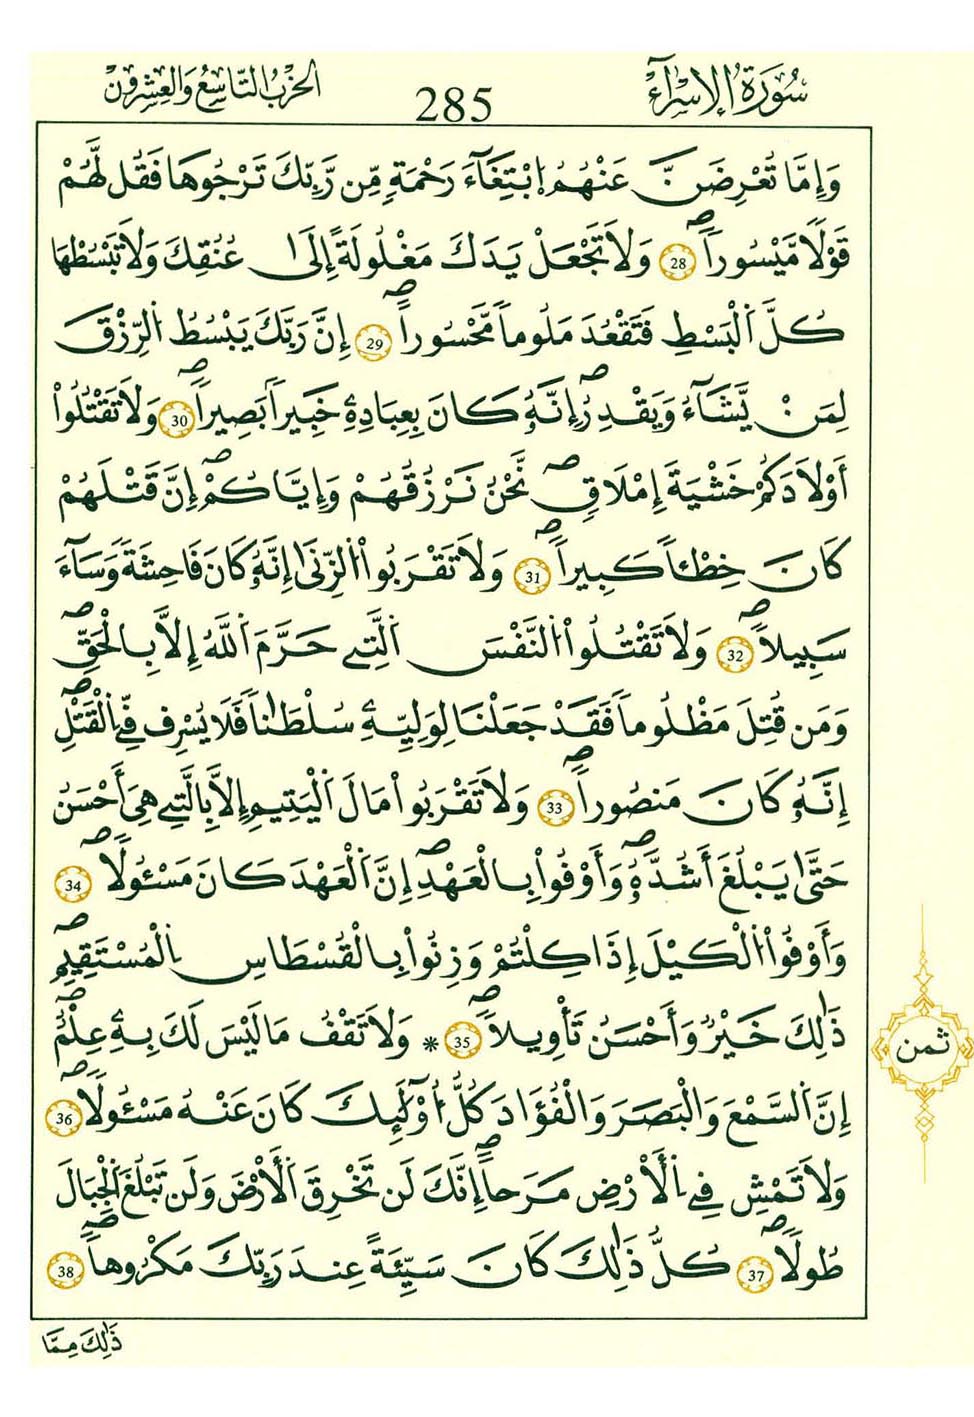 سُورَةُ الإِسْرَآءِ
285
الحِزْبُ التَّاسِعُ وَالعِشْرُونَ
وَإِمَّا تُعْرِضَنَّ عَنْهُمُ اُبْتِغَآءَ رَحْمَةٍ مِّن رَّبِّكَ تَرْجُوهَا فَقُل لَّهُمْ
قَوْلًا مَّيْسُوراًۖ 28 وَلَا تَجْعَلْ يَدَكَ مَغْلُولَةً إِلَىٰ عُنُقِكَ وَلَا تَبْسُطْهَا
كُلَّ اَ۬لْبَسْطِ فَتَقْعُدَ مَلُوماً مَّحْسُوراًۖ 29 إِنَّ رَبَّكَ يَبْسُطُ اُ۬لرِّزْقَ
لِمَنْ يَّشَآءُ وَيَقْدِرُۖ إِنَّهُۥ كَانَ بِعِبَادِهِۦ خَبِيراَۢ بَصِيراًۖ 30 وَلَا تَقْتُلُوٓاْ
أَوْلَادَكُمْ خَشْيَةَ إِمْلَاقٍۖ نَّحْنُ نَرْزُقُهُمْ وَإِيَّاكُمُۥٓۖ إِنَّ قَتْلَهُمْ
كَانَ خِطْـٔاً كَبِيراًۖ 31 وَلَا تَقْرَبُواْ اُ۬لزِّنَىٰٓ إِنَّهُۥ كَانَ فَاحِشَةً وَسَآءَ
سَبِيلاًۖ 32 وَلَا تَقْتُلُواْ اُ۬لنَّفْسَ اَ۬لتِے حَرَّمَ اَ۬للَّهُ إِلَّا بِالْحَقِّۖ
وَمَن قُتِلَ مَظْلُوماً فَقَدْ جَعَلْنَا لِوَلِيِّهِۦ سُلْطَٰناً فَلَا يُسْرِف فِّے اِ۬لْقَتْلِۖ
إِنَّهُۥ كَانَ مَنصُوراًۖ 33 وَلَا تَقْرَبُواْ مَالَ اَ۬لْيَتِيمِ إِلَّا بِالتِے هِيَ أَحْسَنُ
حَتَّىٰ يَبْلُغَ أَشُدَّهُۥۖ وَأَوْفُواْ بِالْعَهْدِۖ إِنَّ اَ۬لْعَهْدَ كَانَ مَسْـُٔولًاۖ 34
وَأَوْفُواْ اُ۬لْكَيْلَ إِذَا كِلْتُمْ وَزِنُواْ بِالْقُسْطَاسِ اِ۬لْمُسْتَقِيمِۖ
ذَٰلِكَ خَيْرٌ وَأَحْسَنُ تَأْوِيلاًۖ 35 * وَلَا تَقْفُ مَا لَيْسَ لَكَ بِهِۦ عِلْمٌۖ
إِنَّ اَ۬لسَّمْعَ وَالْبَصَرَ وَالْفُؤَادَ كُلُّ أُوْلَٰٓئِكَ كَانَ عَنْهُ مَسْـُٔولًاۖ 36
وَلَا تَمْشِ فِے اِ۬لَارْضِ مَرَحاًۖ إِنَّكَ لَن تَخْرِقَ اَ۬لَارْضَ وَلَن تَبْلُغَ اَ۬لْجِبَالَ
طُولًاۖ 37 كُلُّ ذَٰلِكَ كَانَ سَيِّئَةً عِندَ رَبِّكَ مَكْرُوهاًۖ 38
ثمن
ذَٰلِكَ مِمَّا